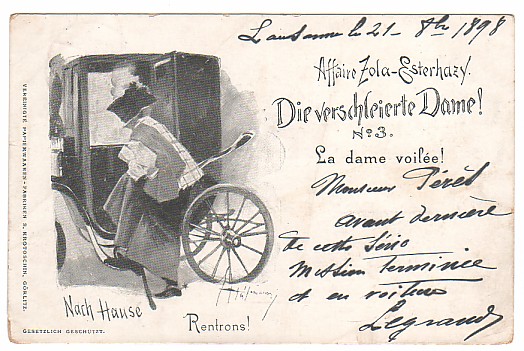 Lausanne le 21 - 8bre 1898
Affaire Zola-Esterhazy.
Die verschleierte Dame!
No 3.
La dame voilée!
Monsieur Pérèt
avant dernière
de cette Série
Mission terminée
et en voiture
Legrand
Nach Hause
Rentrons!
VEREINIGTE PAPIERWAAREN-FABRIKEN S. KROTOSCHIN, GÖRLITZ.
GESETZLICH GESCHÜTZT.